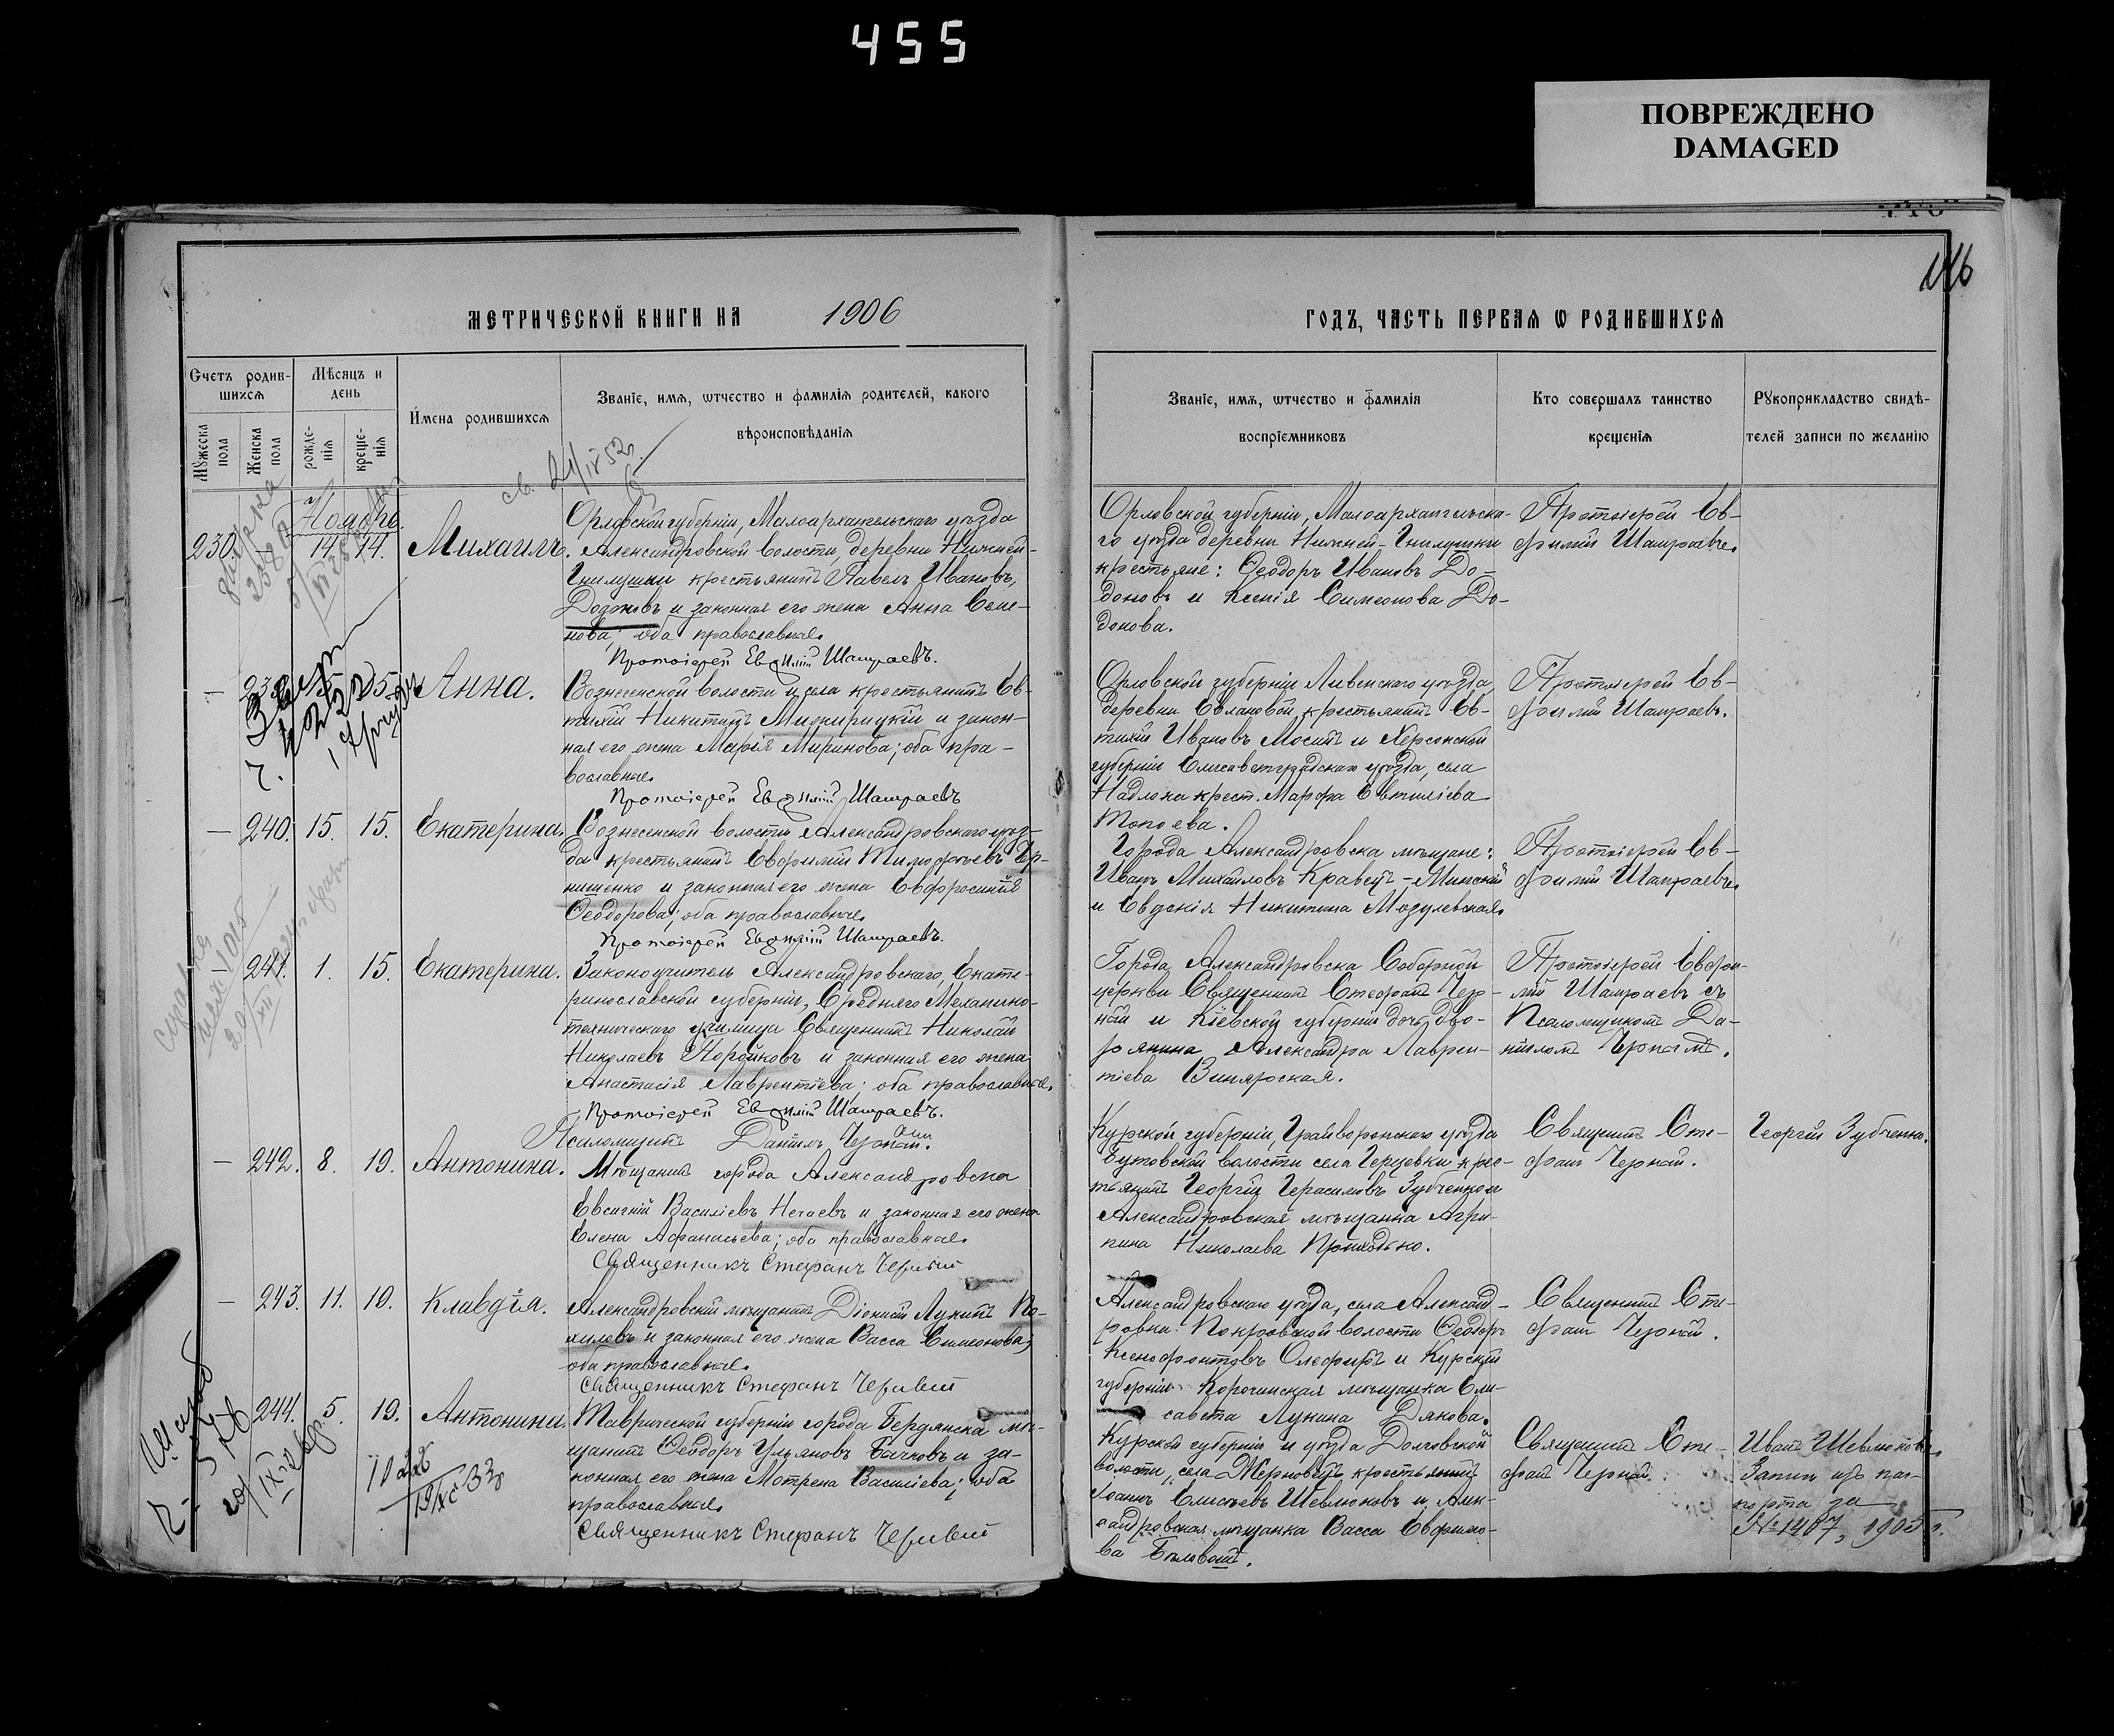 455
ПОВРЕЖДЕНО
DAMAGED
146
МЕТРИЧЕСКОЙ КНИГИ НА 1906
ГОДЪ, ЧАСТЬ ПЕРВАЯ Ѡ РОДИВШИХСЯ
Счетъ родившихся
Мѣсяцъ и день
Имена родившихся
Званіе, имя, ѡтчество и фамилія родителей, какого
вѣроисповѣданія
Мужеска пола
Женска пола
рожденія
крещенія
Званіе, имя, ѡтчество и фамилія
воспріемниковъ
Кто совершалъ таинство
крещенія
Рукоприкладство свидѣ-
телей записи по желанію
Ноябрь.
230. — 14. 14. Михаилъ.
Орловской губерніи, Малоархангельскаго уѣзда
Александровской волости, деревни Нижней-
Гнилушки крестьянинъ Павелъ Ивановъ
Додоновъ и законная его жена Анна Семе-
нова; оба православные.
Протоіерей Евфимій Шамраевъ.
Орловской губерніи, Малоархангельска-
го уѣзда деревни Нижней-Гнилушки
крестьяне: Ѳеодоръ Ивановъ До-
доновъ и Ксенія Симеонова До-
донова.
Протоіерей Ев-
фимій Шамраевъ.
Анна.
Вознесенской волости и села крестьянинъ Ев-
тихій Никитинъ Межирицкій и закон-
ная его жена Марія Миронова; оба пра-
вославные.
Протоіерей Евфимій Шамраевъ
Орловской губерніи Ливенскаго уѣзда,
деревни Евлановой крестьянинъ Ев-
тихій Ивановъ Мосинъ и Херсонской
губерніи Елисаветградскаго уѣзда, села
Надлака крест. Марфа Евтихіева
Протоіерей Ев-
фимій Шамраевъ.
— 240. 15. 15. Екатерина.
Вознесенской волости Александровскаго уѣз-
да крестьянинъ Евфимій Тимофѣевъ Ир-
нищенко и законная его жена Евфросинія
Ѳеодорова; оба православные.
Протоіерей Евфимій Шамраевъ.
Города Александровска мѣщане:
Иванъ Михаиловъ Кравецъ-Минскій
и Евдокія Никитина Модулевская.
Протоіерей Ев-
фимій Шамраевъ.
241. 1. 15. Екатерина.
Законоучитель Александровскаго, Екате-
ринославской губерніи, Средняго Механико-
техническаго училища Священникъ Николай
Николаевъ и законная его жена
Анастасія Лаврентіева; оба православные.
Протоіерей Евфимій Шамраевъ.
Псаломщикъ Даніилъ
Города Александровска Соборной
церкви Священникъ Стефанъ Чер-
ный и Кіевской губерніи дочь дво-
рянина Александра Лаврен-
тіева Винярская.
Протоіерей Евфи-
мій Шамраевъ съ
Псаломщикомъ Да-
ніиломъ
— 242. 8. 19. Антонина.
Мѣщанинъ города Александровска
Евсигній Василіевъ Нечаевъ и законная его жена
Елена Афанасьева; оба православные.
Священникъ Стефанъ Черный
Курской губерніи, Грайворонскаго уѣзда
Бутовской волости села Герцевки крес-
тьянинъ Георгій Герасимовъ Зубченко и
Александровская мѣщанка Агри-
пина Николаева Приходько.
Священникъ Сте-
фанъ Черный.
Георгій Зубченко.
— 243. 11. 19. Клавдія.
Александровскій мѣщанинъ Діонисій Лукинъ По-
хиловъ и законная его жена Васса Симеонова;
оба православные.
Священникъ Стефанъ Черный
Александровскаго уѣзда, села Александ-
ровки Покровской волости Ѳеодоръ
Ксенофонтовъ Олефиръ и Курской
губерніи Корочинская мѣщанка Ели-
савета Лукина Дякова.
Священникъ Сте-
фанъ Черный.
244. 5. 19. Антонина.
Таврической губерніи города Бердянска мѣ-
щанинъ Ѳеодоръ Ульяновъ Бачковъ и за-
конная его жена Мотрена Василіева; оба
православные.
Священникъ Стефанъ Черный
Курской губерніи и уѣзда Долговской
волости, села Жерновецъ крестьянинъ
Іоаннъ Елисѣевъ Шевлюковъ и Алек-
сандровская мѣщанка Васса Евфимо-
ва
Священникъ Сте-
фанъ Черный.
Иванъ Шевлюковъ.
Запись изъ пас-
порта за
№ 1407, 1905 г.